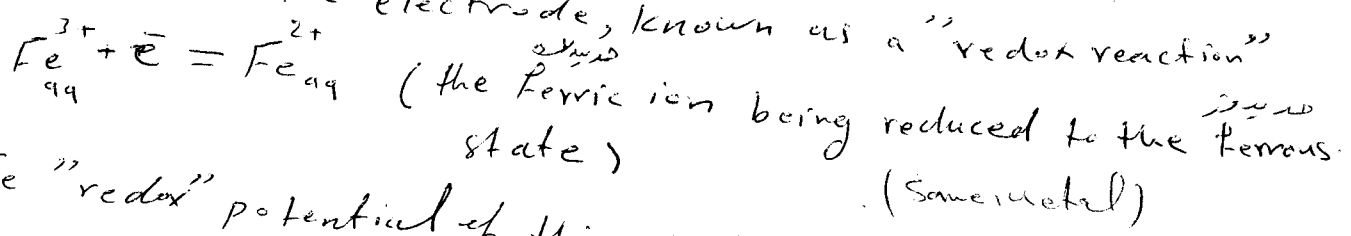 electrode, known as a "redox reaction"
Fe³⁺aq + ē = Fe²⁺aq (the ferric ion being reduced to the ferrous
state)
"redox" potential of
(same metal)